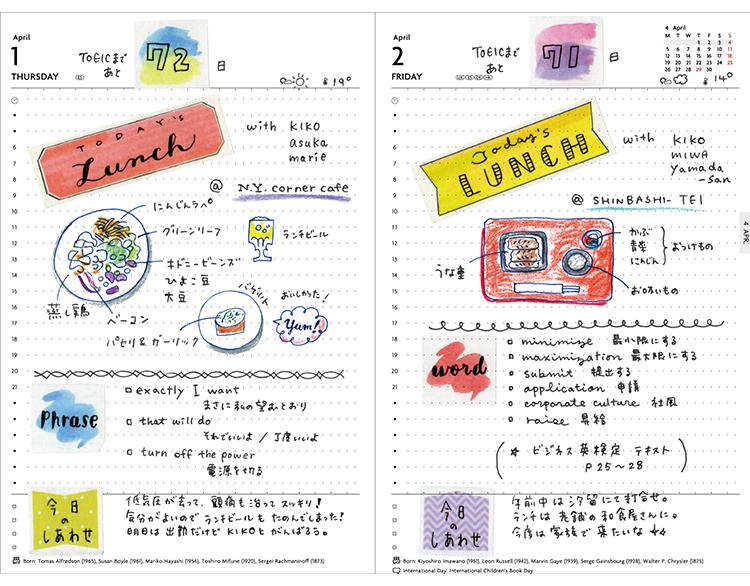 April
1
THURSDAY
TOEICまで
あと
72
日
19°
TODAY'S
Lunch
with KIKO
asuka
marie
@ N.Y. corner cafe
にんじんラペ
グリーンリーフ
キドニービーンズ
ひよこ豆
大豆
蒸し鶏
ベーコン
パセリ&ガーリック
バゲット
ランチビール
おいしかった!
Yum!
Phrase
exactly I want
まさに私の望むとおり
that will do
それでいいよ / 丁度いいよ
turn off the power
電源を切る
今日
の
しあわせ
低気圧が去って、頭痛も治ってスッキリ!
気分がよいのでランチビールもたのんでしまった!
明日は出勤だけどKIKOとがんばろう。
Born: Tomas Alfredson (1965), Susan Boyle (1961), Mariko Hayashi (1954), Toshiro Mifune (1920), Sergei Rachmaninoff (1873)
April
2
FRIDAY
TOEICまで
あと
71
日
4 April
M T W T F S S
1 2 3 4
5 6 7 8 9 10 11
12 13 14 15 16 17 18
19 20 21 22 23 24 25
26 27 28 29 30
14°
Today's
LUNCH
with KIKO
MIWA
Yamada
-san
@ SHINBASHI-TEI
うな重
かぶ
青菜
にんじん
おつけもの
おすいもの
4 APR
word
minimize 最小限にする
maximization 最大限にする
submit 提出する
application 申請
corporate culture 社風
raise 昇給
(☆ ビジネス英検定 テキスト
P25〜28)
今日
の
しあわせ
午前中は汐留にて打合せ。
ランチは老舗の和食屋さんに。
今度は家族で来たいな
Born: Kiyoshiro Imawano (1951), Leon Russell (1942), Marvin Gaye (1939), Serge Gainsbourg (1928), Walter P. Chrysler (1875)
International Day: International Children's Book Day
6
7
8
9
10
11
12
13
14
15
16
17
18
19
20
21